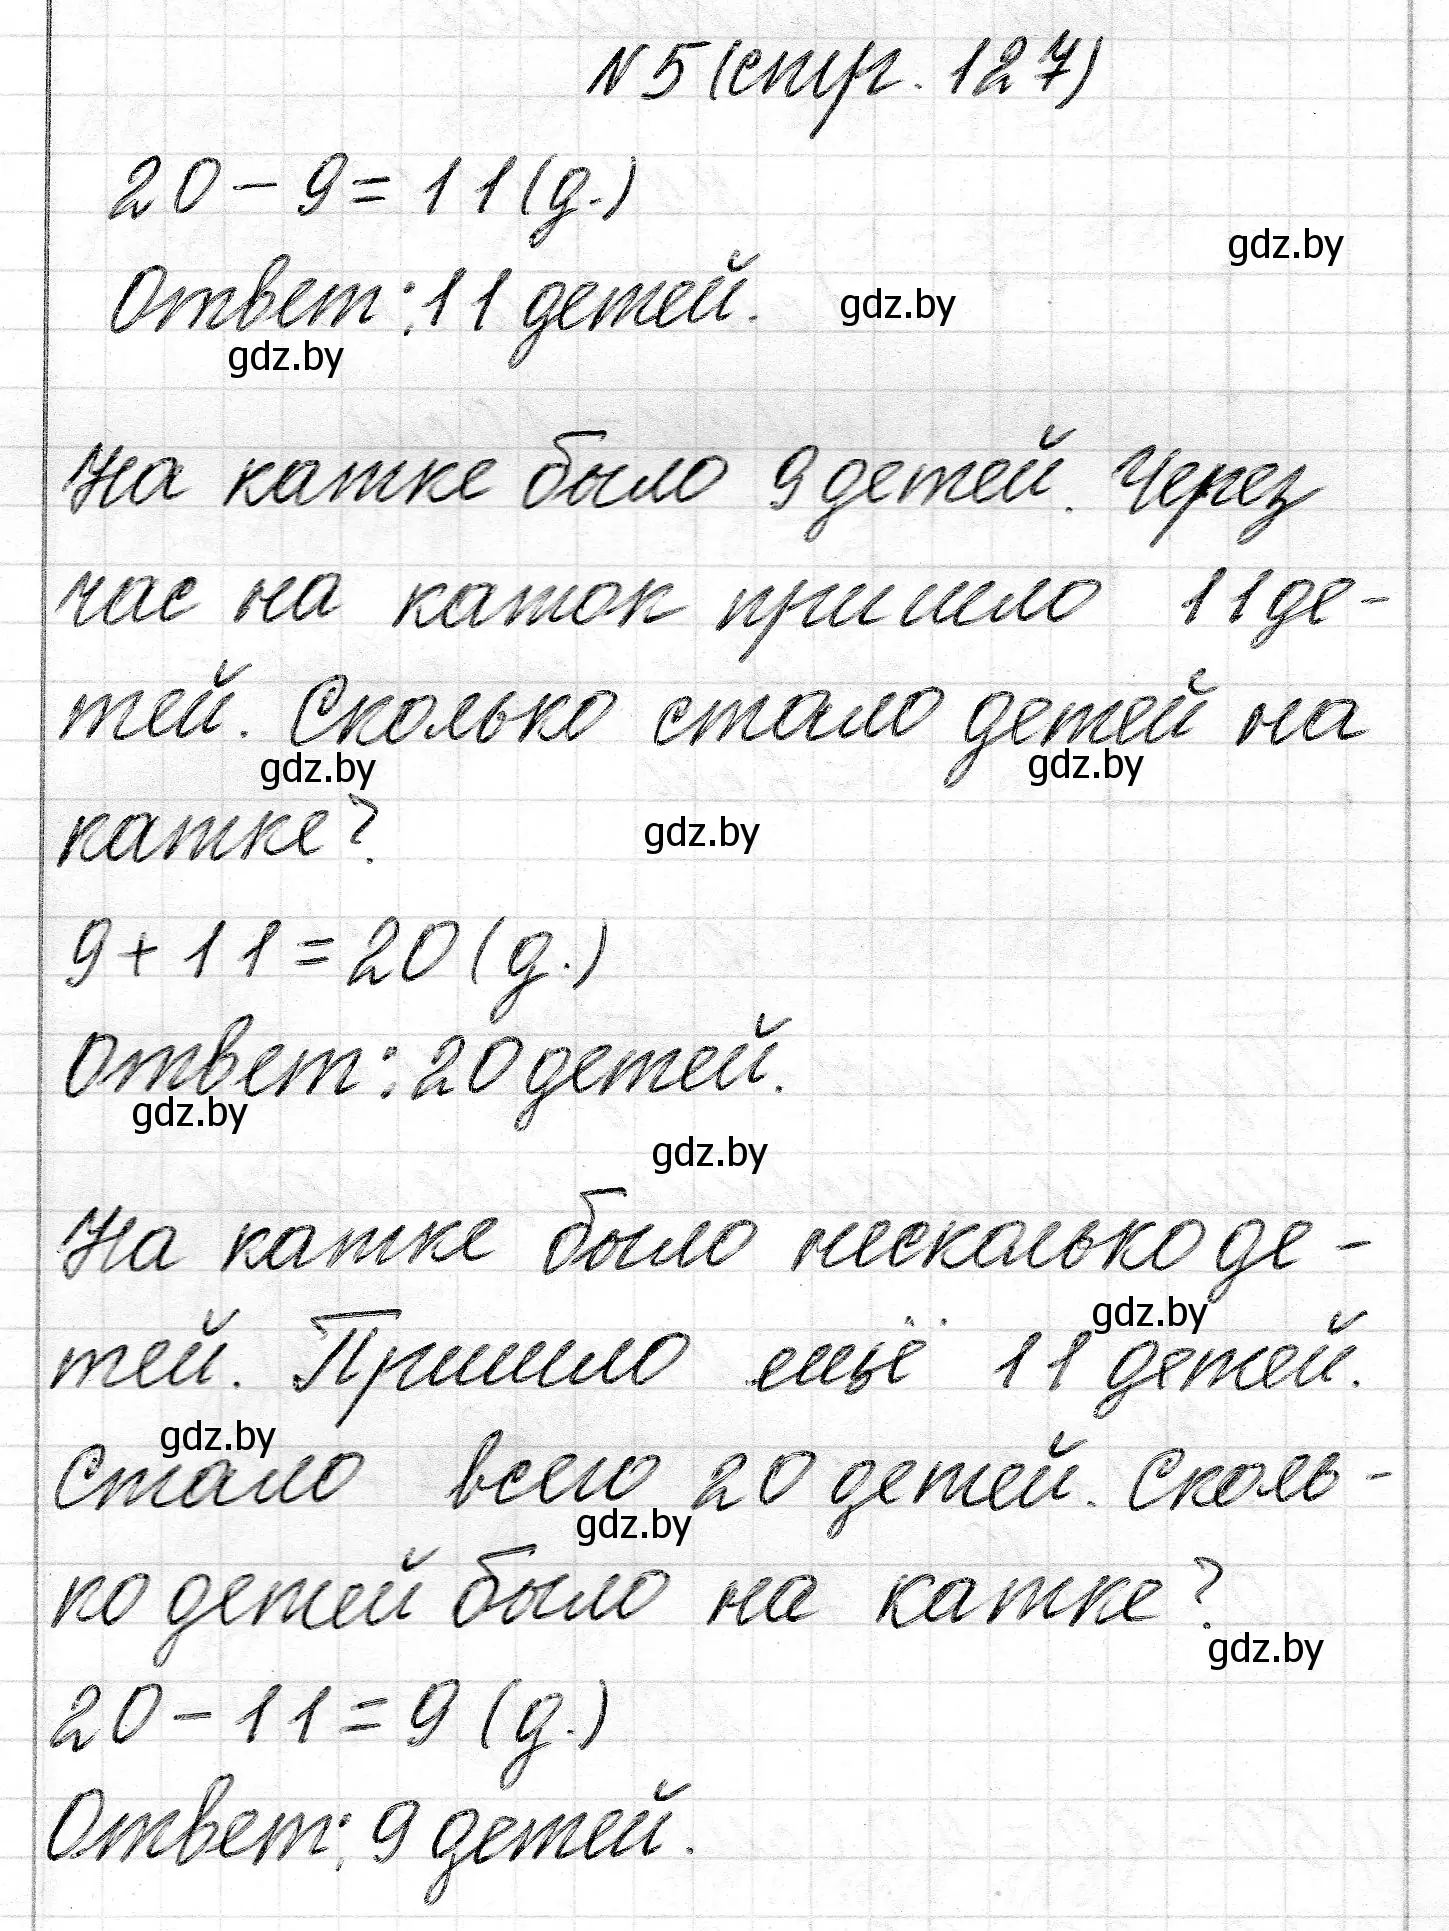 N5 (стр. 127)
20 - 9 = 11 (д.)
gdz.by
Ответ: 11 детей.
gdz.by
gdz.by
На катке было 9 детей. Через
час на каток пришло 11 де-
тей. Сколько стало детей на
gdz.by
gdz.by
катке?
gdz.by
9 + 11 = 20 (д.)
Ответ: 20 детей.
gdz.by
gdz.by
На катке было несколько де-
gdz.by
тей. Пришло ещё 11 детей.
gdz.by
Стало всего 20 детей. Сколь-
gdz.by
ко детей было на катке?
gdz.by
20 - 11 = 9 (д.)
Ответ: 9 детей.